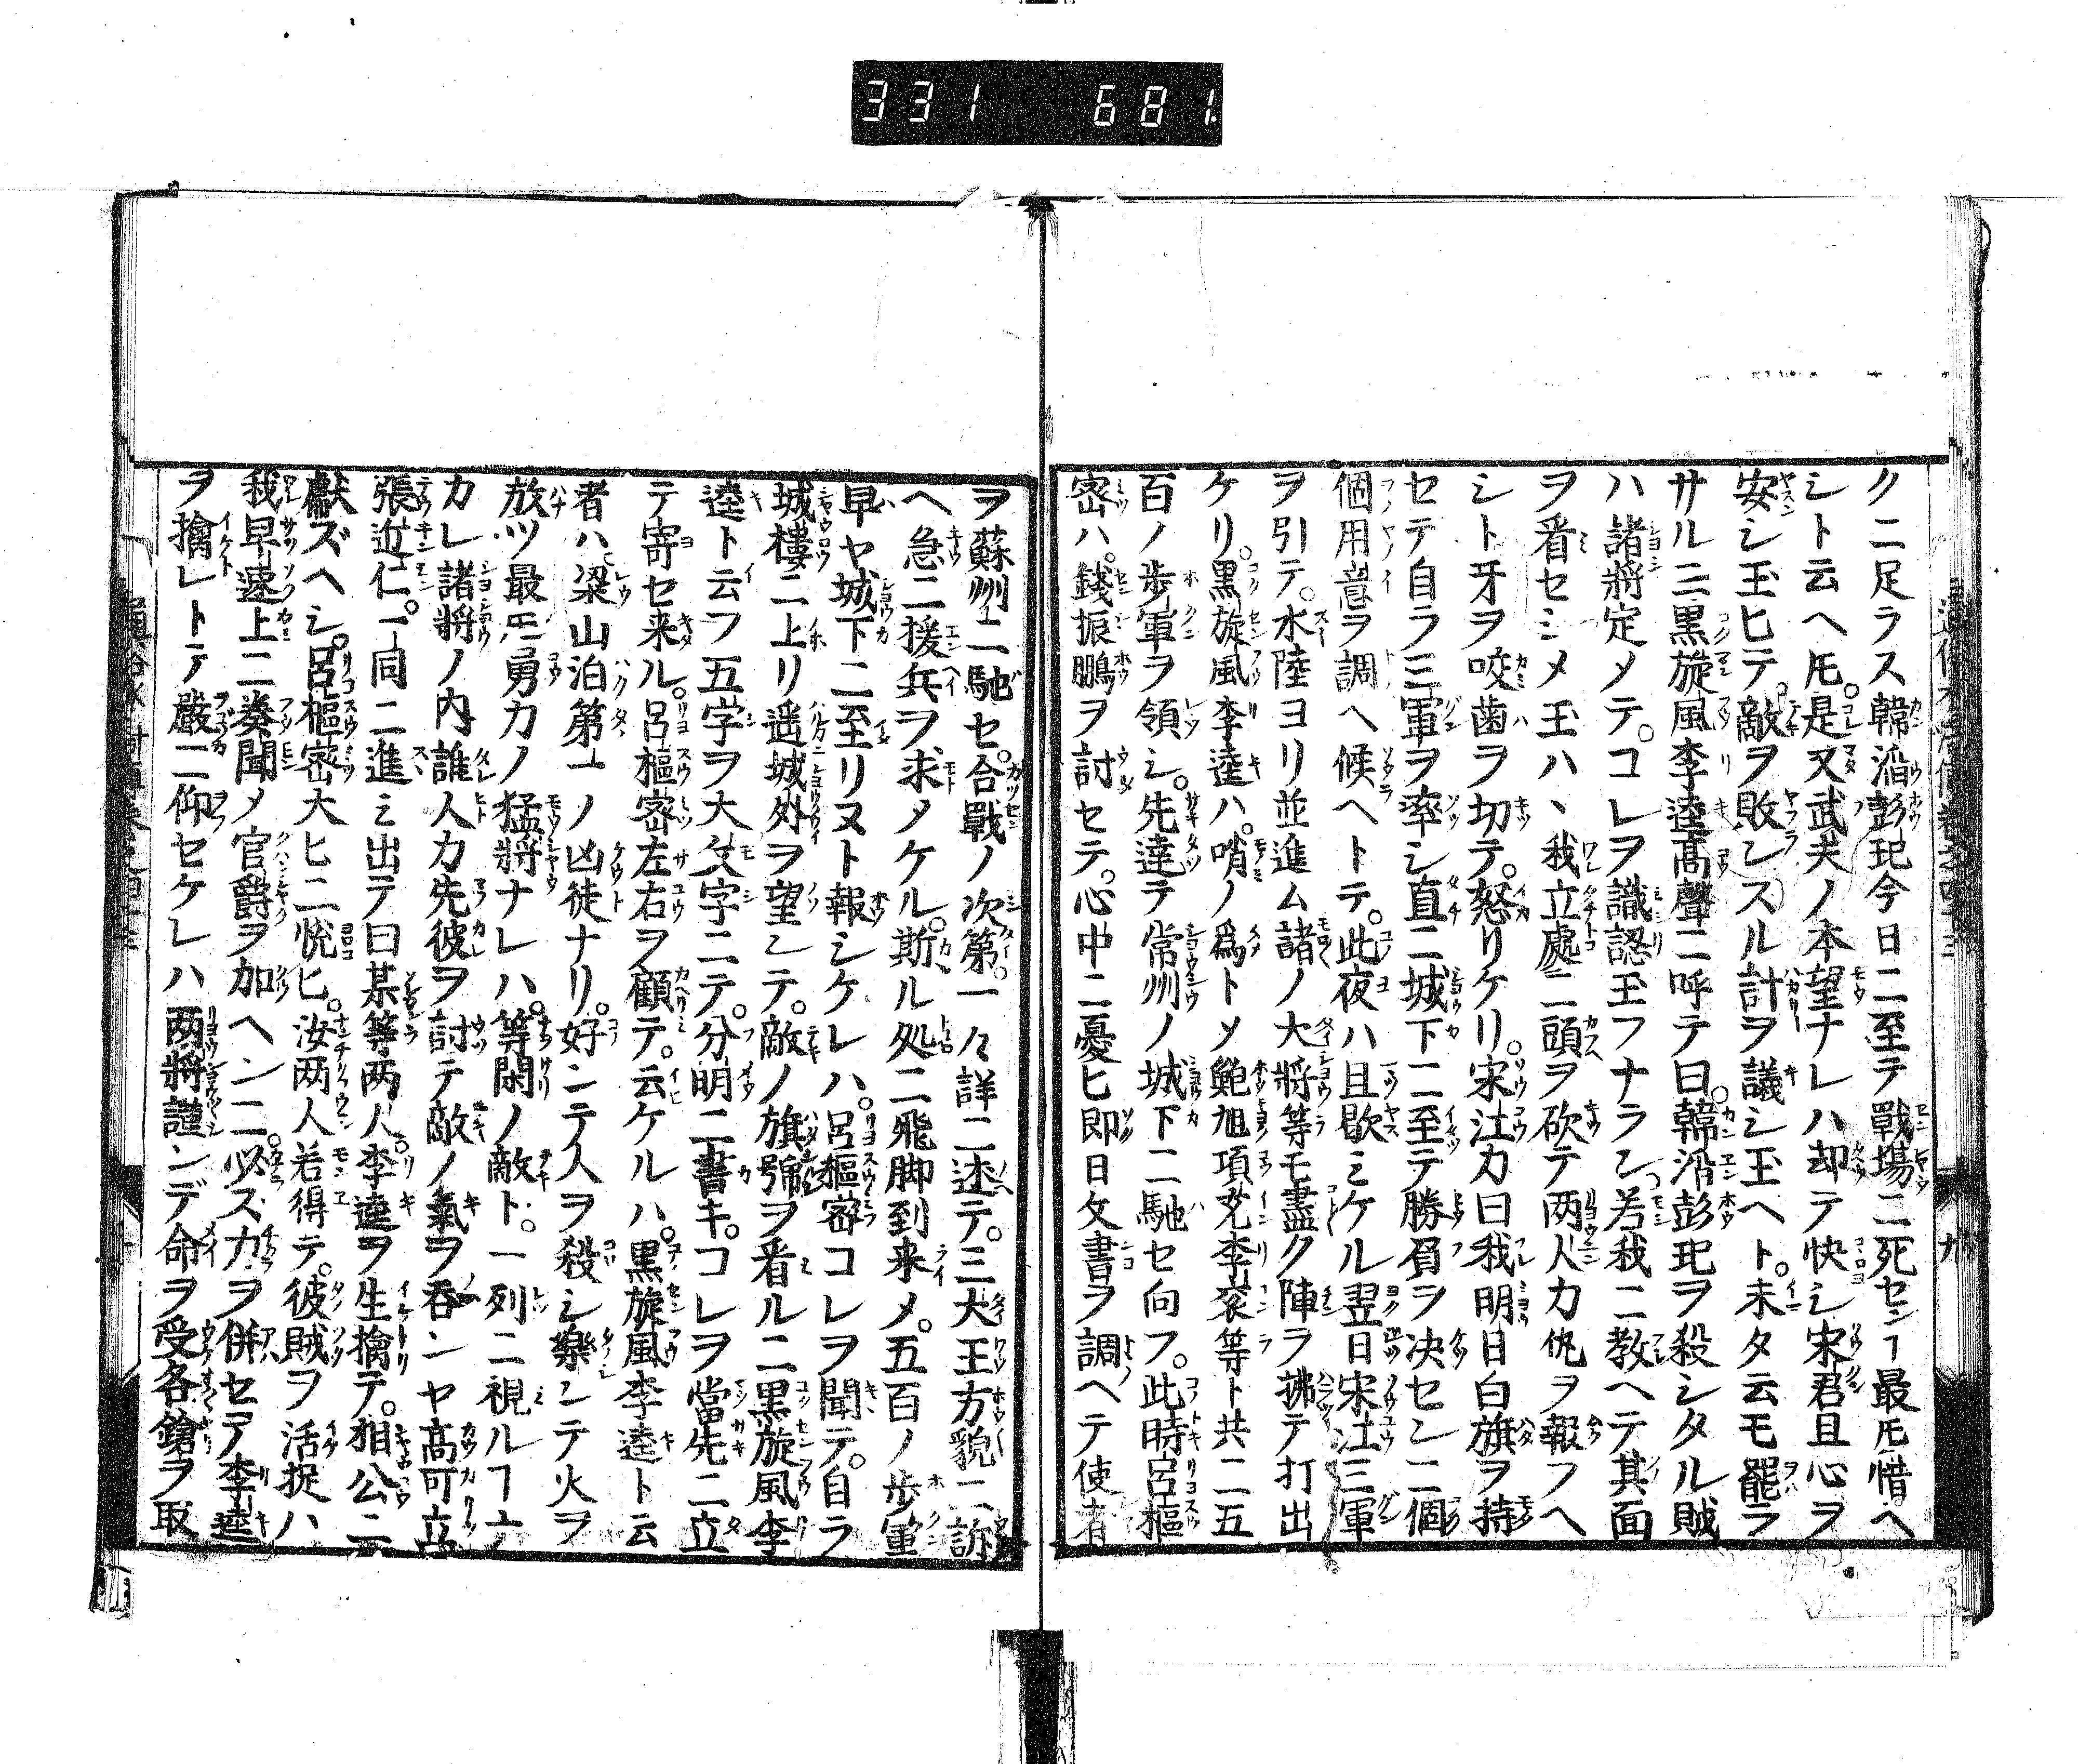 331 681
クニ足ラス韓滔彭玘今日ニ至テ戰場ニ死センヿ最𪜈惜ヘ
シト云ヘ𪜈。是又武夫ノ本望ナレハ却テ快シ宋君且心ヲ
安シ玉ヒテ。敵ヲ敗レスル計ヲ議シ玉ヘト。未タ云モ罷ラ
サルニ黒旋風李逵髙聲ニ呼テ曰。韓滔彭玘ヲ殺シタル賊
ハ諸將定メテ。コレヲ識認玉フナラン。若我ニ教ヘテ其面
ヲ看セシメ玉ハヽ我立處ニ頭ヲ砍テ两人カ仇ヲ報フヘ
シト牙ヲ咬歯ヲ切テ。怒リケリ。宋江カ曰我明日白旗ヲ持
セテ自ラ三軍ヲ率シ直ニ城下ニ至テ勝負ヲ决セン二個
個用意ヲ調ヘ候ヘトテ。此夜ハ且歇ミケル翌日宋江三軍
ヲ引テ。水陸ヨリ並進ム諸ノ大將等モ盡ク陣ヲ拂テ打出
ケリ。黒旋風李逵ハ。哨ノ爲トメ鮑旭項充李衮等ト共ニ五
百ノ歩軍ヲ領シ。先達テ常州ノ城下ニ馳セ向フ。此時呂樞
宻ハ。錢振鵬ヲ討セテ。心中ニ憂ヒ即日文書ヲ調ヘテ使者
ヲ蘇州エ馳セ。合戰ノ次第。一々詳ニ述テ。三大王方貌ニ訴
ヘ急ニ援兵ヲ求メケル。斯ル処ニ飛脚到来メ。五百ノ歩軍
早ヤ城下ニ至リヌト報シケレハ。呂樞宻コレヲ聞テ。自ラ
城樓ニ上リ遥城外ヲ望シテ。敵ノ旗號ヲ看ルニ黒旋風李
逵ト云フ五字ヲ大文字ニテ。分明ニ書キ。コレヲ當先ニ立
テ寄セ来ル。呂樞宻左右ヲ顧テ。云ケルハ。黒旋風李逵ト云
者ハ梁山泊第一ノ凶徒ナリ。好ンテ人ヲ殺シ樂ンテ火ヲ
放ツ最𪜈勇カノ猛將ナレハ。等閑ノ敵ト。一列ニ視ルヿナ
カレ諸將ノ内誰人カ先彼ヲ討テ敵ノ氣ヲ吞ンヤ高可立
張近仁。一同ニ進ミ出テ曰某等两人。李逵ヲ生擒テ。相公ニ
獻ズヘシ。呂樞宻大ヒニ悦ヒ。汝两人若得テ。彼賊ヲ活捉ハ
我早速上ニ奏聞メ官爵ヲ加ヘンニ。必ズ力ヲ併セテ李逵
ヲ擒レトテ嚴ニ仰セケレハ两將謹ンデ命ヲ受各鎗ヲ取